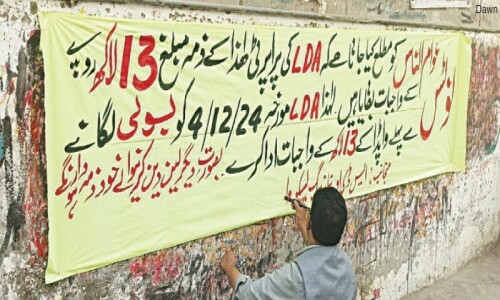 Dawn
نوٹس
عوام الناس کو مطلع کیا جاتا ہے کہ LDA کی پراپرٹی ھذا کے ذمہ مبلغ 13 لاکھ روپے
کے واجبات بقایا ہیں۔ لہٰذا LDA مورخہ 4/12/24 کو بولی لگانے
سے پہلے واپڈا کے 13 لاکھ کے واجبات ادا کرے
بصورت دیگر لین دین کرنیوالے خود ذمہ دار ہونگے
منجانب: ایس ڈی او